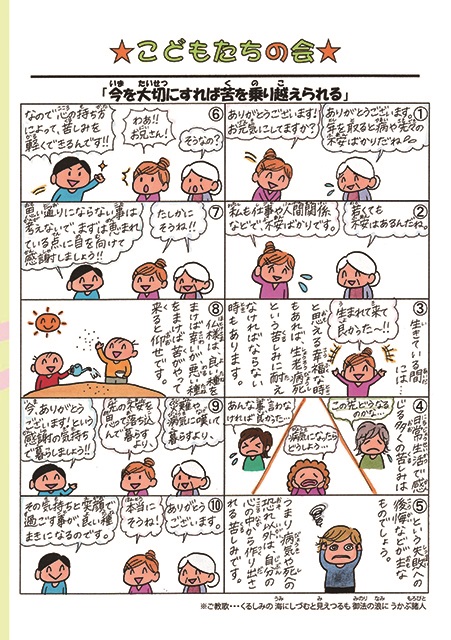 ★こどもたちの会★
「今を大切にすれば苦を乗り越えられる」
①
ありがとうございます。
年を取ると病や先々の
不安ばかりだね〜。
ありがとうございます!
お元気にしてますか?
②
若くても
不安はあるんだね。
私も仕事や人間関係
などで、不安ばかりです。
③
生きている間
には、
生まれて来て
良かった〜!!
と思える幸福な時
もあれば、生老病死
という苦しみに耐え
なければならない
時もあります。
④
日常生活で感
じる多くの苦しみは
この先どうなる
のかな…
病気になったら
どうしよう…
あんな事言わな
ければ良かった…
⑤
という失敗への
後悔などが主な
ものでしょう。
つまり病気や死への
恐れ以外は、自分の
心の中から作り出さ
れる苦しみです。
⑥
そうなの?
わあ!!
お兄さん!
なので心の持ち方
によって、苦しみを
軽くできるんです!!
⑦
たしかに
そうね!!
思い通りにならない事は
考えないで、まずは恵まれ
ている点に目を向けて
感謝しましょう!!
⑧
仏様は、良い種を
まけば幸いが、悪い種
をまけば苦がやって
来ると仰せです。
⑨
災難や
病気に嘆いて
暮らすより、
先の不安を
思って落ち込
んで暮らす
より、
今、ありがとう
ございます!という
感謝の気持ち
で暮らしましょう!!
⑩
ありがとう
ございます。
本当に
そうね!
その気持ちと笑顔で
過ごす事が、良い種
まきになるのです。
※ご教歌・・・くるしみの 海にしづむと見えつるも 御法の浪に うかぶ諸人